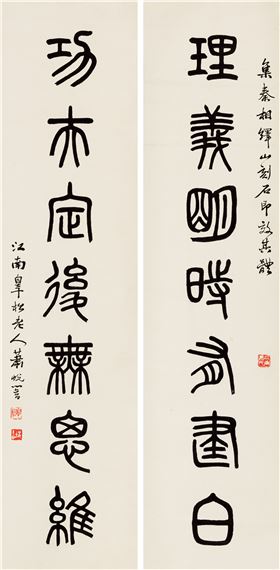 集秦相繹山刻石即效其體
理義明時有建白
功夫定後無思維
江南皋松老人蕭蛻